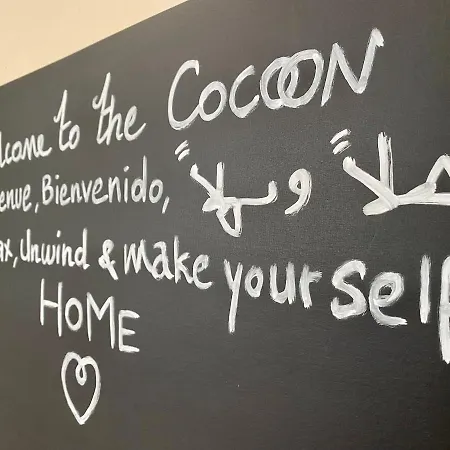 lcome to the COCOON
enue, Bienvenido, هلاً و سهلاً
ax, Unwind & make yourself
HOME